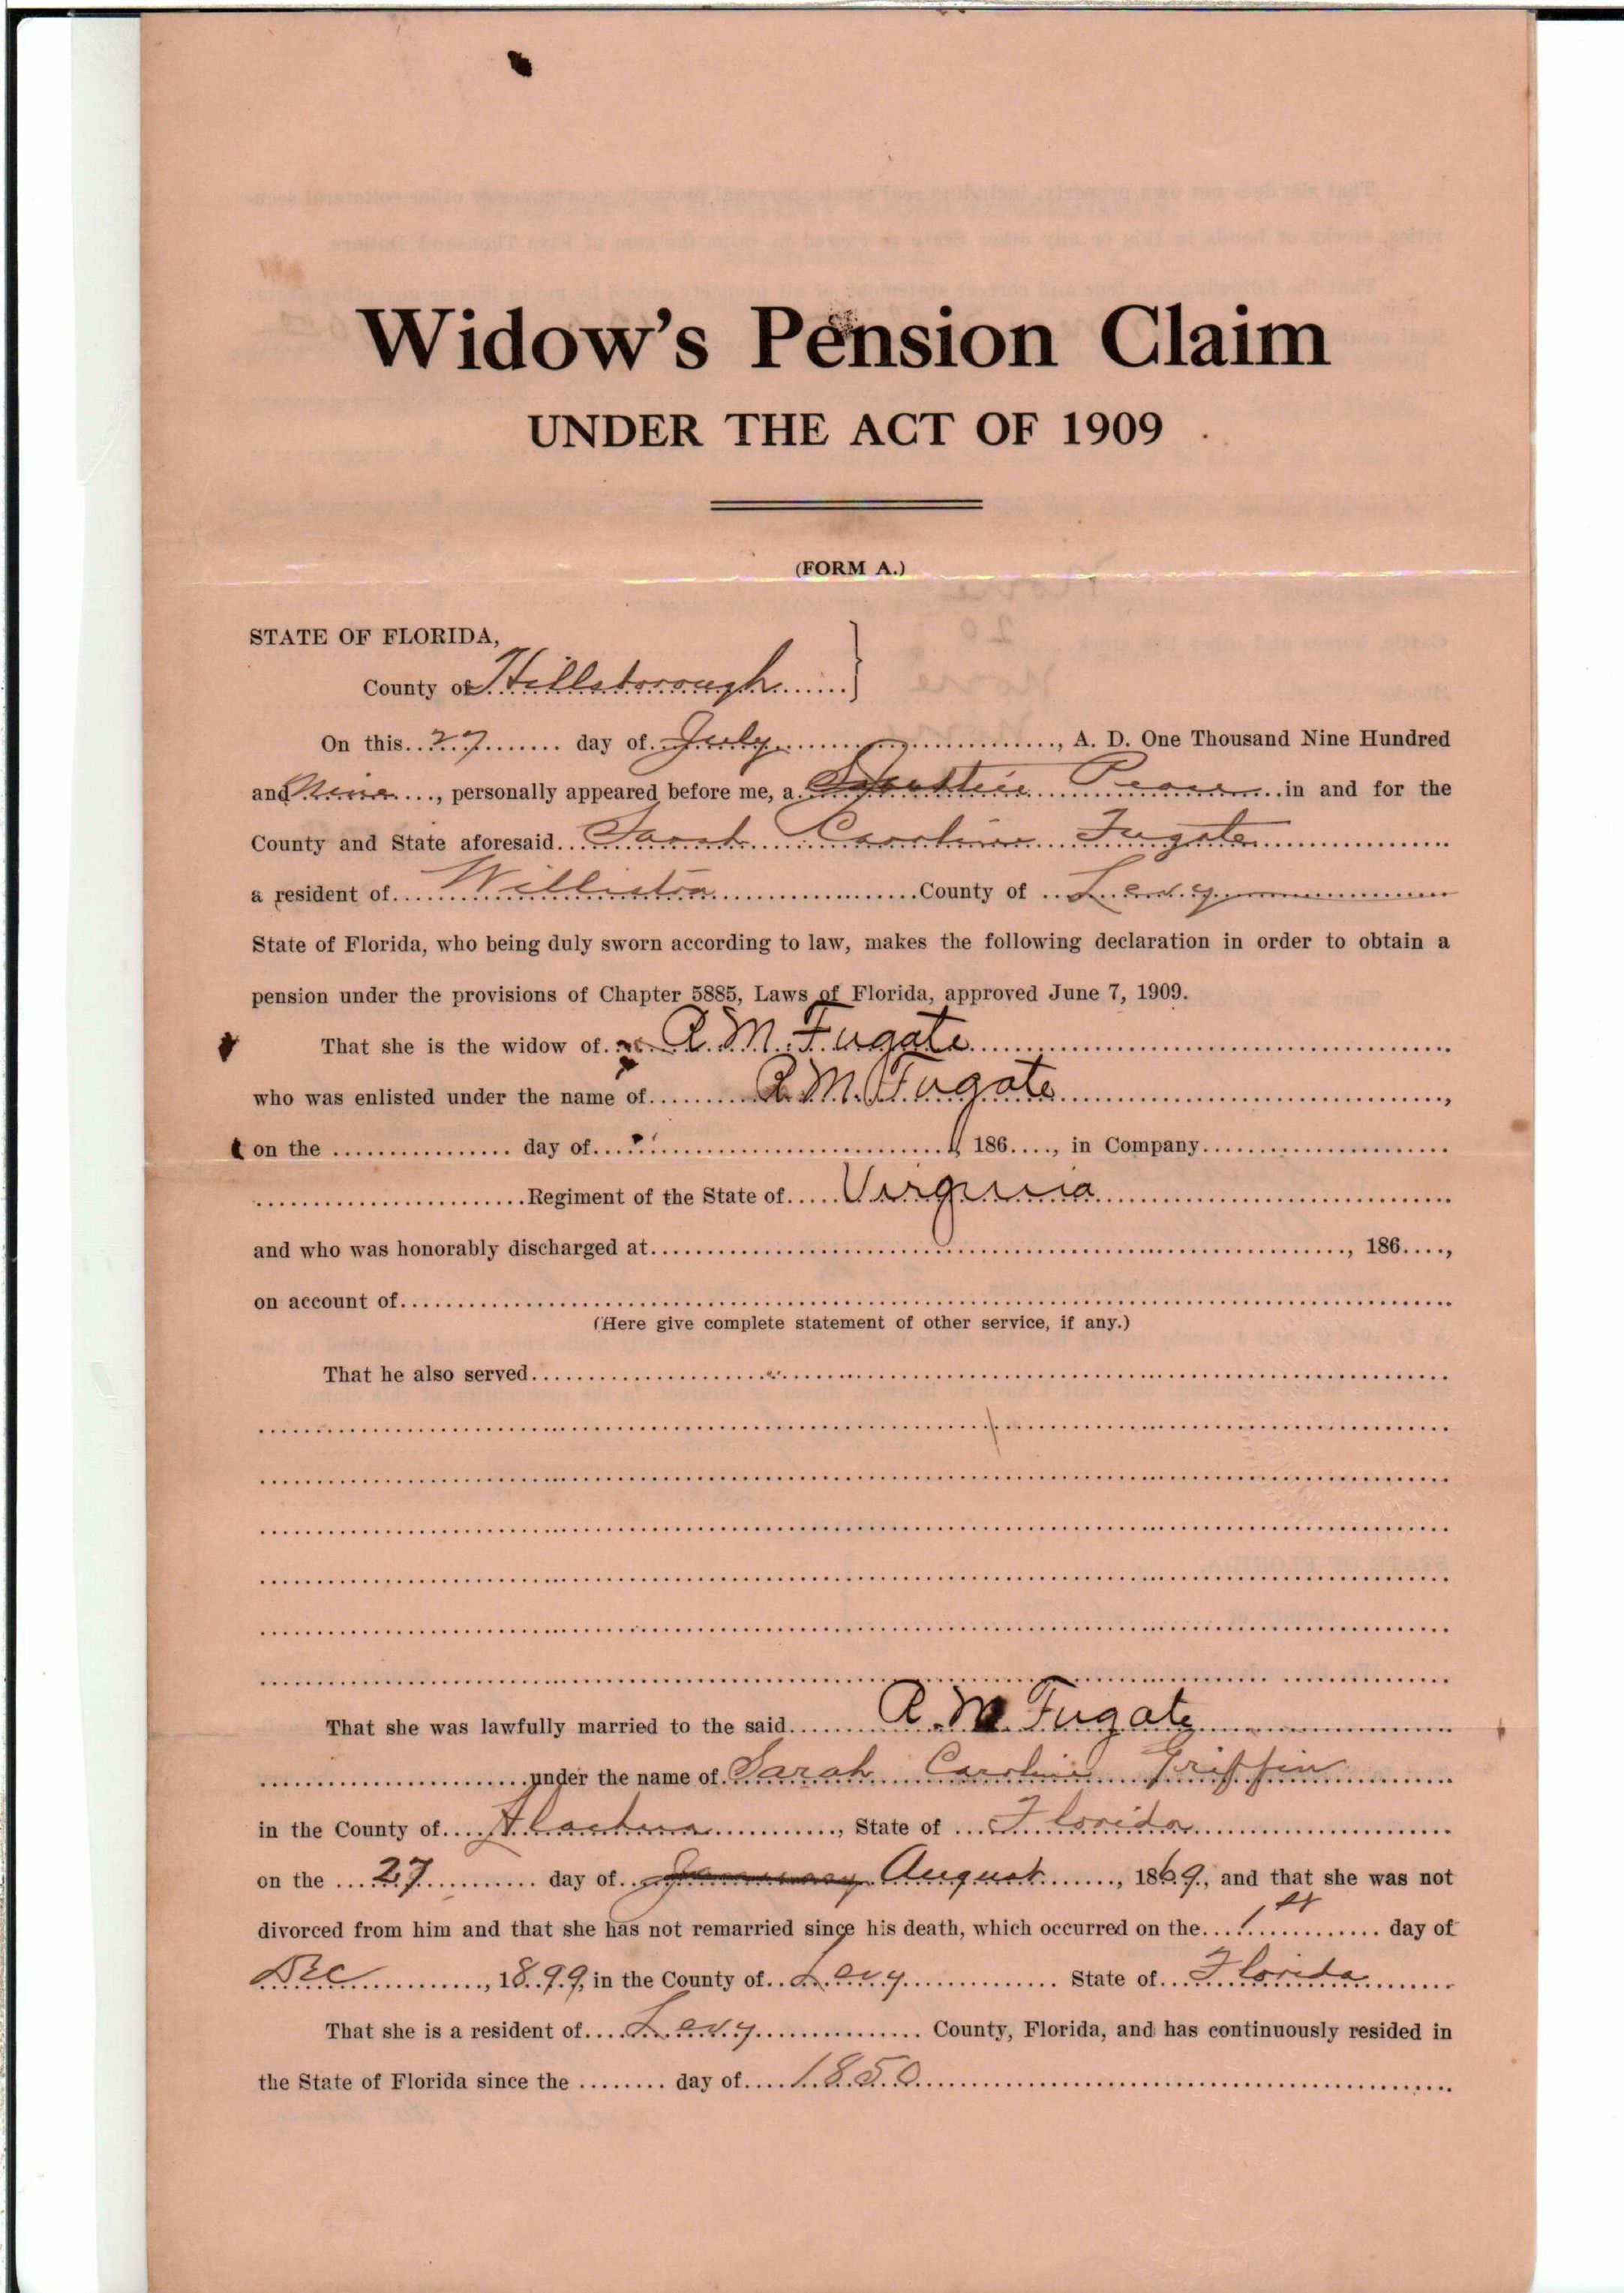 Widow's Pension Claim
UNDER THE ACT OF 1909
(FORM A.)
STATE OF FLORIDA,
County of Hillsborough
On this 27 day of July, A. D. One Thousand Nine Hundred
and Nine, personally appeared before me, a Justice Peace in and for the
County and State aforesaid Sarah Caroline Fugate
a resident of Williston County of Levy
State of Florida, who being duly sworn according to law, makes the following declaration in order to obtain a
pension under the provisions of Chapter 5885, Laws of Florida, approved June 7, 1909.
That she is the widow of R. M. Fugate
who was enlisted under the name of R. M. Fugate,
on the day of , 186 , in Company
Regiment of the State of Virginia
and who was honorably discharged at , 186 ,
on account of
(Here give complete statement of other service, if any.)
That he also served
That she was lawfully married to the said R. M. Fugate
under the name of Sarah Caroline Griffin
in the County of Alachua, State of Florida
on the 27 day of January August, 1869, and that she was not
divorced from him and that she has not remarried since his death, which occurred on the 1st day of
Dec, 1899, in the County of Levy State of Florida
That she is a resident of Levy County, Florida, and has continuously resided in
the State of Florida since the day of 1850